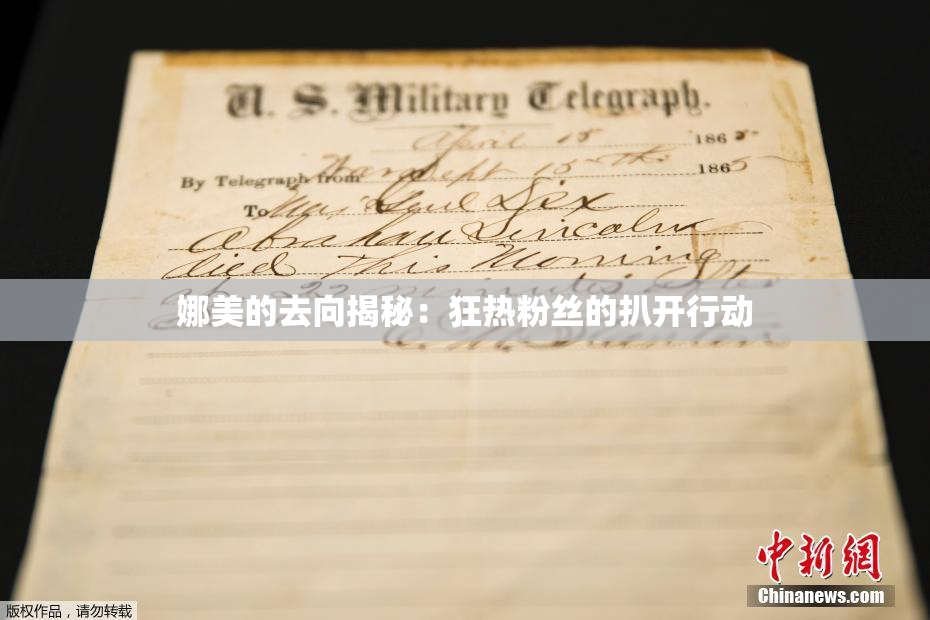 U. S. Military Telegraph.
April 15 1865
By Telegraph from War Dept 15th 1865
To Maj Genl Dix
Abraham Lincoln
died this Morning
at 22 minutes after
E. M. Stanton
娜美的去向揭秘：狂热粉丝的扒开行动
中新网
Chinanews.com
版权作品，请勿转载